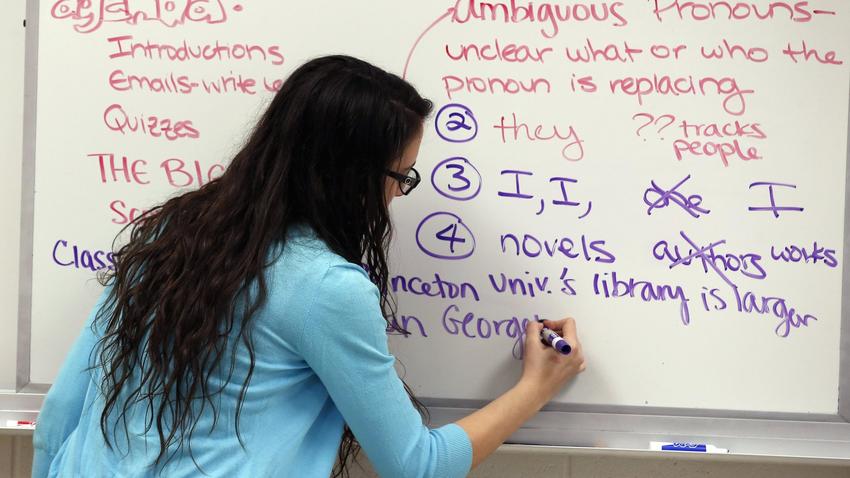 Introductions
Emails-write
Quizzes
THE
Class
Ambiguous Pronouns-
unclear what or who the
pronoun is replacing
② they ?? tracks
people
③ I, I, one I
④ novels authors works
nceton Univ.'s library is larger
n George